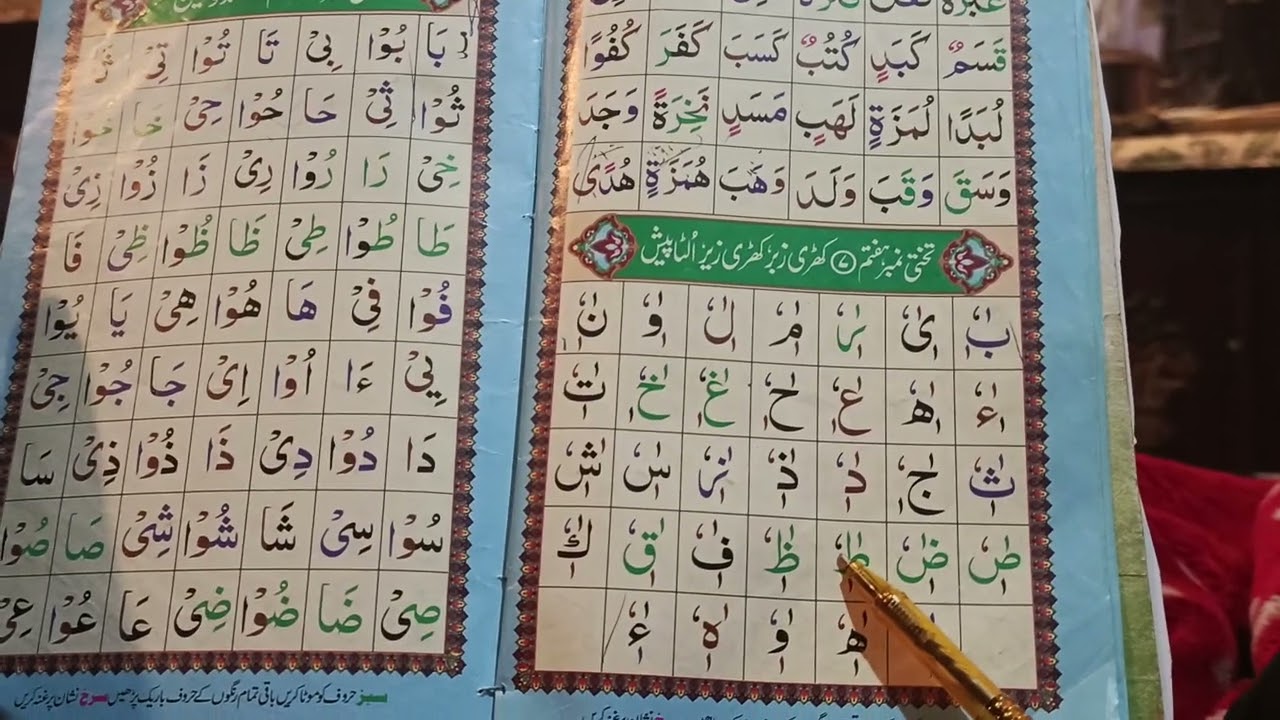 قَسَمٌ كَبَدٍ كُتُبٌ كَسَبَ كَفَرَ كُفُوًا
لُبَدًا لُمَزَةٍ لَهَبٍ مَسَدٍ نَخِرَةً وَجَدَ
وَسَقَ وَقَبَ وَلَدَ وَهَبَ هُمَزَةٍ هُدًى
تختی نمبر ہفتم ۷ کھڑی زبر، کھڑی زیر، اُلٹا پیش
بٰٖٗ یٰٖٗ رٰٖٗ مٰٖٗ لٰٖٗ وٰٖٗ نٰٖٗ
ءٰٖٗ ھٰٖٗ عٰٖٗ حٰٖٗ غٰٖٗ خٰٖٗ تٰٖٗ
ثٰٖٗ جٰٖٗ دٰٖٗ ذٰٖٗ زٰٖٗ سٰٖٗ شٰٖٗ
صٰٖٗ ضٰٖٗ طٰٖٗ ظٰٖٗ فٰٖٗ قٰٖٗ كٰٖٗ
ھٰٖٗ وٰٖٗ هٰٖٗ ءٰٖٗ
بَا بُوْا بِیْ تَا تُوْا تِیْ ثَا
ثُوْا ثِیْ حَا حُوْا حِیْ خَا خُوْا
خِیْ رَا رُوْا رِیْ زَا زُوْا زِیْ
طَا طُوْا طِیْ ظَا ظُوْا ظِیْ فَا
فُوْا فِیْ هَا هُوْا هِیْ یَا یُوْا
یِیْ ءَا اُوْا اِیْ جَا جُوْا جِیْ
دَا دُوْا دِیْ ذَا ذُوْا ذِیْ سَا
سُوْا سِیْ شَا شُوْا شِیْ صَا صُوْا
صِیْ ضَا ضُوْا ضِیْ عَا عُوْا عِیْ
سبز حروف کو موٹا کریں باقی تمام رنگوں کے حروف باریک پڑھیں سرخ نشان پر غنہ کریں